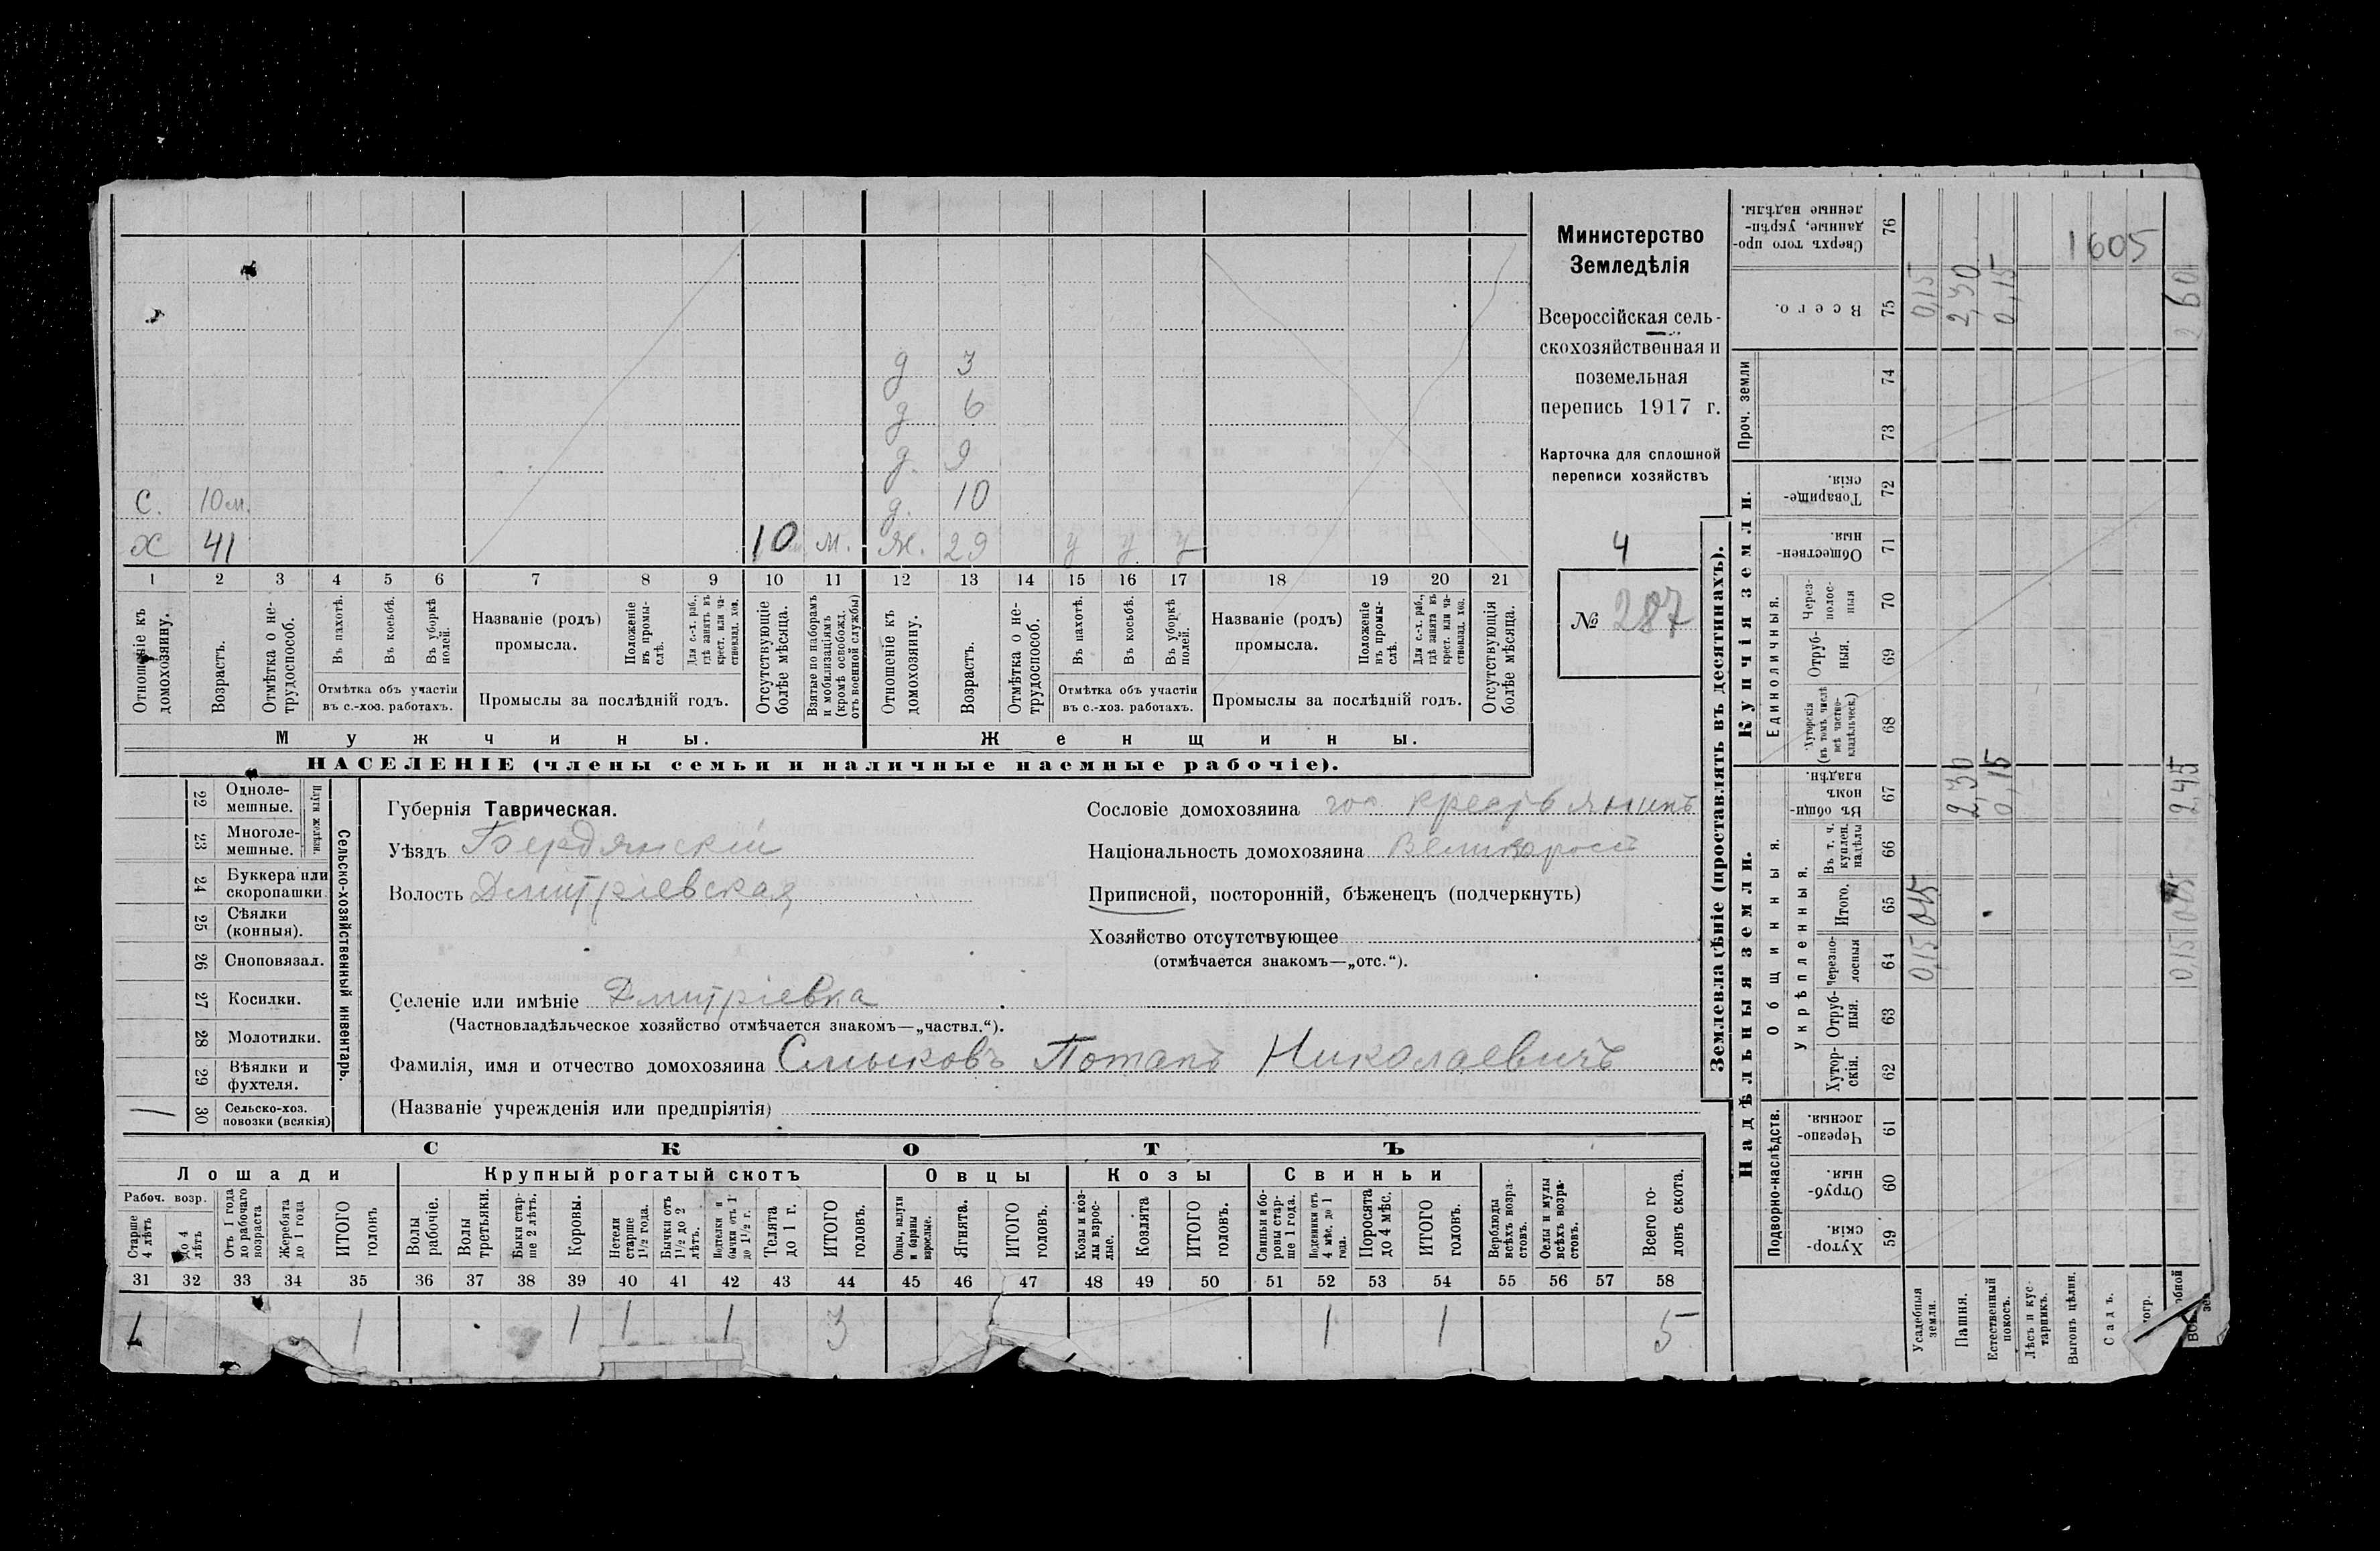 д 3
д 6
д. 9
С. 10м. д. 10
Х 41 10 м. Ж. 29 у у у
1 2 3 4 5 6 7 8 9 10 11 12 13 14 15 16 17 18 19 20 21
Отношеніе къ домохозяину.
Возрастъ.
Отмѣтка о не-трудоспособ.
Въ пахотѣ.
Въ косьбѣ.
Въ уборкѣ полей.
Отмѣтка объ участіи
въ с.-хоз. работахъ.
Названіе (родъ)
промысла.
Положеніе въ промы-слѣ.
Для с.-х. раб., гдѣ занятъ въ крест. или ча-стновлад. хоз.
Промыслы за послѣдній годъ.
Отсутствующіе болѣе мѣсяца.
Взятые по наборамъ и мобилизаціямъ (кромѣ освобожд. отъ военной службы)
Отношеніе къ домохозяину.
Возрастъ.
Отмѣтка о не-трудоспособ.
Въ пахотѣ.
Въ косьбѣ.
Въ уборкѣ полей.
Отмѣтка объ участіи
въ с.-хоз. работахъ.
Названіе (родъ)
промысла.
Положеніе въ промы-слѣ.
Для с.-х. раб., гдѣ занята въ крест. или ча-стновлад. хоз.
Промыслы за послѣдній годъ.
Отсутствующія болѣе мѣсяца.
Мужчины.
Женщины.
НАСЕЛЕНІЕ (члены семьи и наличные наемные рабочіе).
Министерство
Земледѣлія
Всероссійская сель-
скохозяйственная и
поземельная
перепись 1917 г.
Карточка для сплошной
переписи хозяйствъ
4
№ 287
22 Одноле-мешные.
23 Многоле-мешные.
Плуги желѣзн.
24 Буккера или скоропашки.
25 Сѣялки (конныя).
26 Сноповязал.
27 Косилки.
28 Молотилки.
29 Вѣялки и фухтеля.
1 30 Сельско-хоз. повозки (всякія)
Сельско-хозяйственный инвентарь.
Губернія Таврическая.
Уѣздъ Бердянскій
Волость Дмитріевская
Сословіе домохозяина гос. крестьянинъ
Національность домохозяина Великоросъ
Приписной, посторонній, бѣженецъ (подчеркнуть)
Хозяйство отсутствующее
(отмѣчается знакомъ—„отс.“).
Селеніе или имѣніе Дмитріевка
(Частновладѣльческое хозяйство отмѣчается знакомъ—„частвл.“).
Фамилія, имя и отчество домохозяина Смыковъ Потапъ Николаевичъ
(Названіе учрежденія или предпріятія)
СКОТЪ
Лошади Крупный рогатый скотъ Овцы Козы Свиньи
Рабоч. возр.
Старше 4 лѣтъ
до 4 лѣтъ
Отъ 1 года до рабочаго возраста
Жеребята до 1 года
ИТОГО головъ
Волы рабочіе.
Волы третьяки.
Быки стар-ше 2 лѣтъ.
Коровы.
Нетели старше 1½ года.
Бычки отъ 1½ до 2 лѣтъ.
Подтелки и бычки отъ 1 до 1½ г.
Телята до 1 г.
ИТОГО головъ.
Овцы, валухи и бараны взрослые.
Ягнята.
ИТОГО головъ.
Козы и коз-лы взрос-лые.
Козлята
ИТОГО головъ.
Свиньи и бо-ровы стар-ше 1 года.
Подсвинки отъ 4 мѣс. до 1 года.
Поросята до 4 мѣс.
ИТОГО головъ.
Верблюды всѣхъ возра-стовъ.
Ослы и мулы всѣхъ возра-стовъ.
Всего го-ловъ скота.
31 32 33 34 35 36 37 38 39 40 41 42 43 44 45 46 47 48 49 50 51 52 53 54 55 56 57 58
1 1 1 1 1 3 1 1 5
Землевладѣніе (проставлять въ десятинахъ).
Надѣльныя земли.
Купчія земли.
Проч. земли
Подворно-наслѣдств.
Общинныя.
Укрѣпленныя.
Единоличныя.
Сверхъ того про-данные, укрѣп-ленные надѣлы. 76
Всего. 75 0,15 2,30 0,15 2 60
1605
74
73
Товарище-скія. 72
Обществен-ныя. 71
Через-полос-ныя 70
Отруб-ныя. 69
Хуторскія (въ томъ числѣ всѣ частно-владѣльческ.) 68
Въ общин-номъ владѣн. 67 2,30 0,15 2,45
Въ т. ч. куплен. надѣлы 66
Итого. 65 0,15 0,15
Черезпо-лосныя 64 0,15 0,15
Отруб-ныя. 63
Хутор-скія. 62
Черезпо-лосныя. 61
Отруб-ныя. 60
Хутор-скія. 59
Усадебныя земли.
Пашня.
Естественный покосъ.
Лѣсъ и кус-тарникъ.
Выгонъ цѣлин.
Садъ.